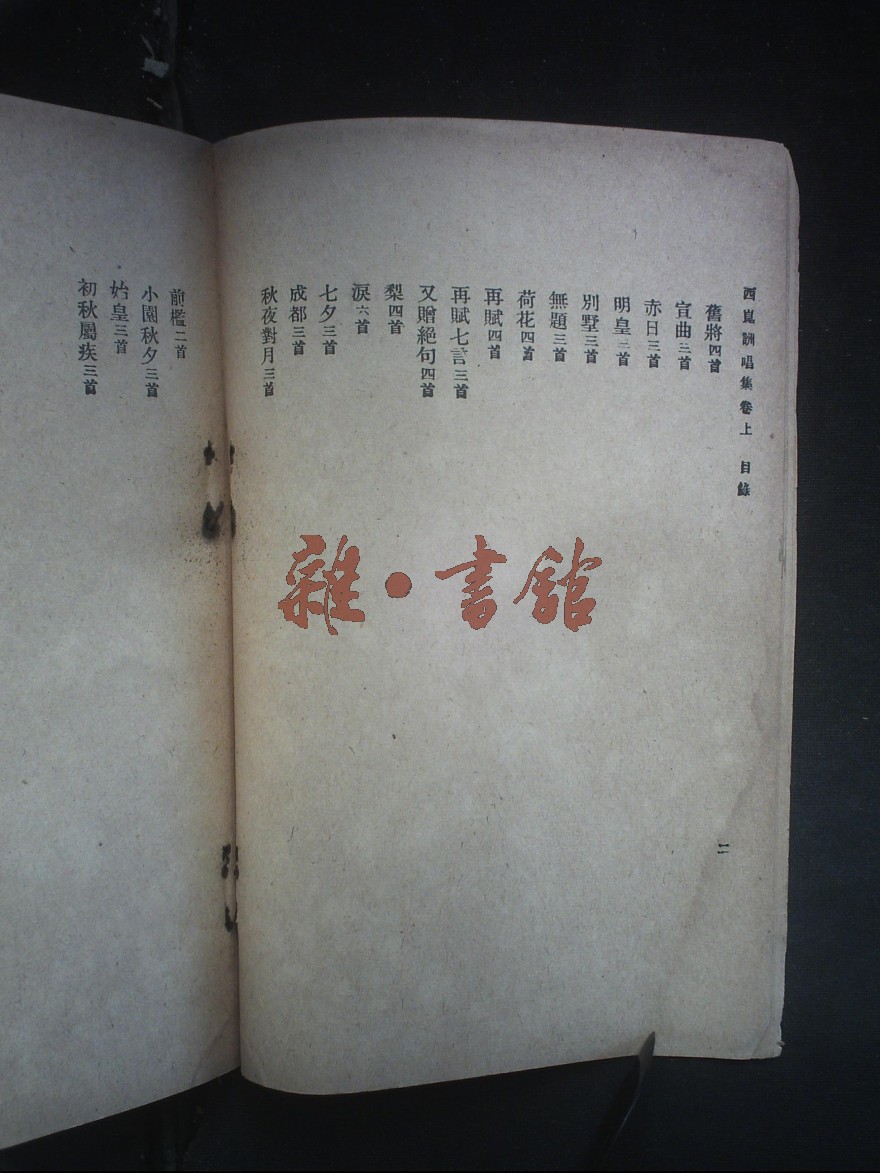 西崑詶唱集卷上 目錄
舊將四首
宣曲三首
赤日三首
明皇三首
別墅三首
無題三首
荷花四首
再賦四首
再賦七言三首
又贈絕句四首
梨四首
淚六首
七夕三首
成都三首
秋夜對月三首
二
前檻二首
小園秋夕三首
始皇三首
初秋屬疾三首
雜·書館